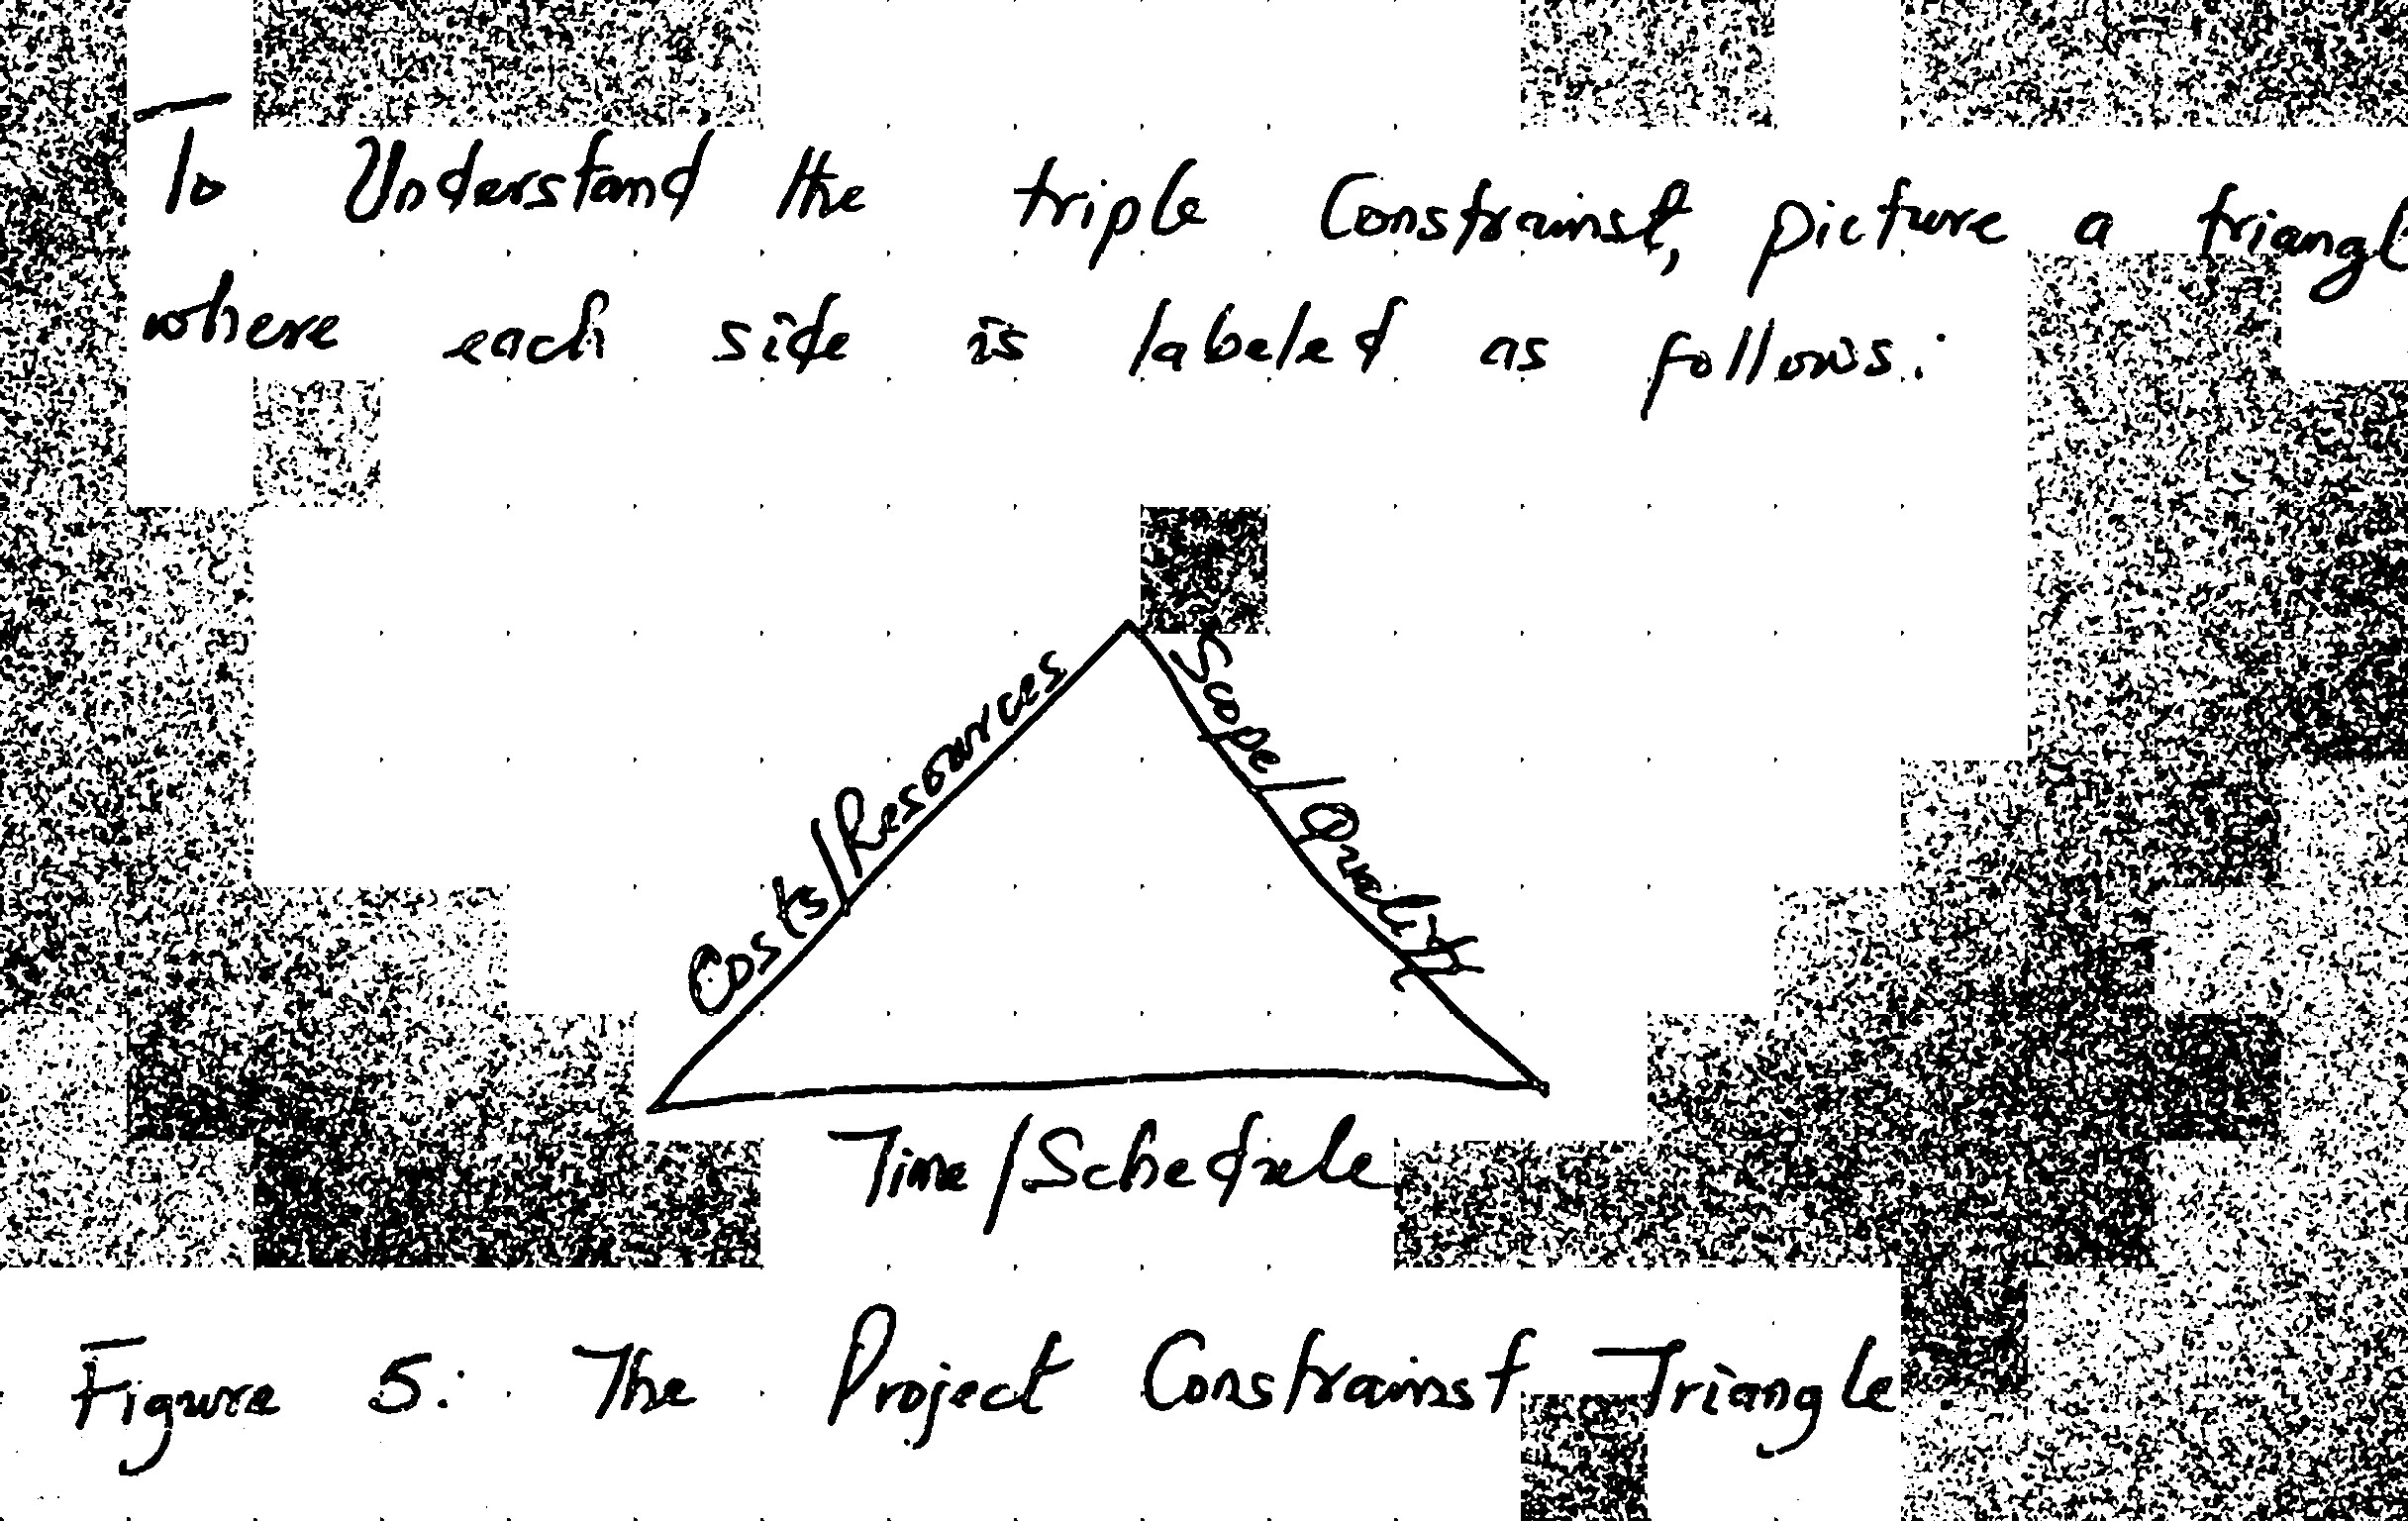 To Understand the triple Constrainst, picture a triangl
where each side is labeled as follows:
Costs/Resources
Scope/Quality
Time/Schedule
Figure 5: The Project Constrainst Triangle